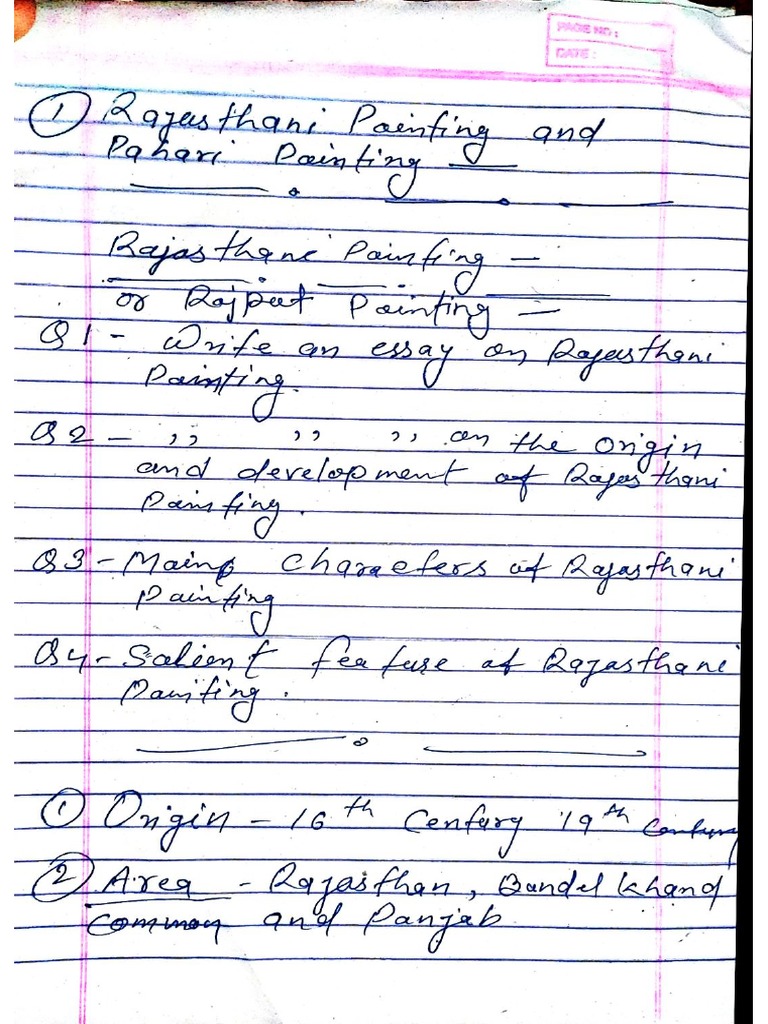 PAGE NO :
DATE :
① Rajasthani Painting and
Pahari Painting —
Rajasthani Painting —
or Rajput Painting —
Q1 - Write an essay on Rajasthani
Painting.
Q2 - ,, ,, ,, on the origin
and development of Rajasthani
Painting.
Q3 - Main characters of Rajasthani
Painting
Q4 - Salient feature of Rajasthani
Painting.
① Origin - 16th Century 19th Century
② Area - Rajasthan, Bundel Khand
Common and Panjab